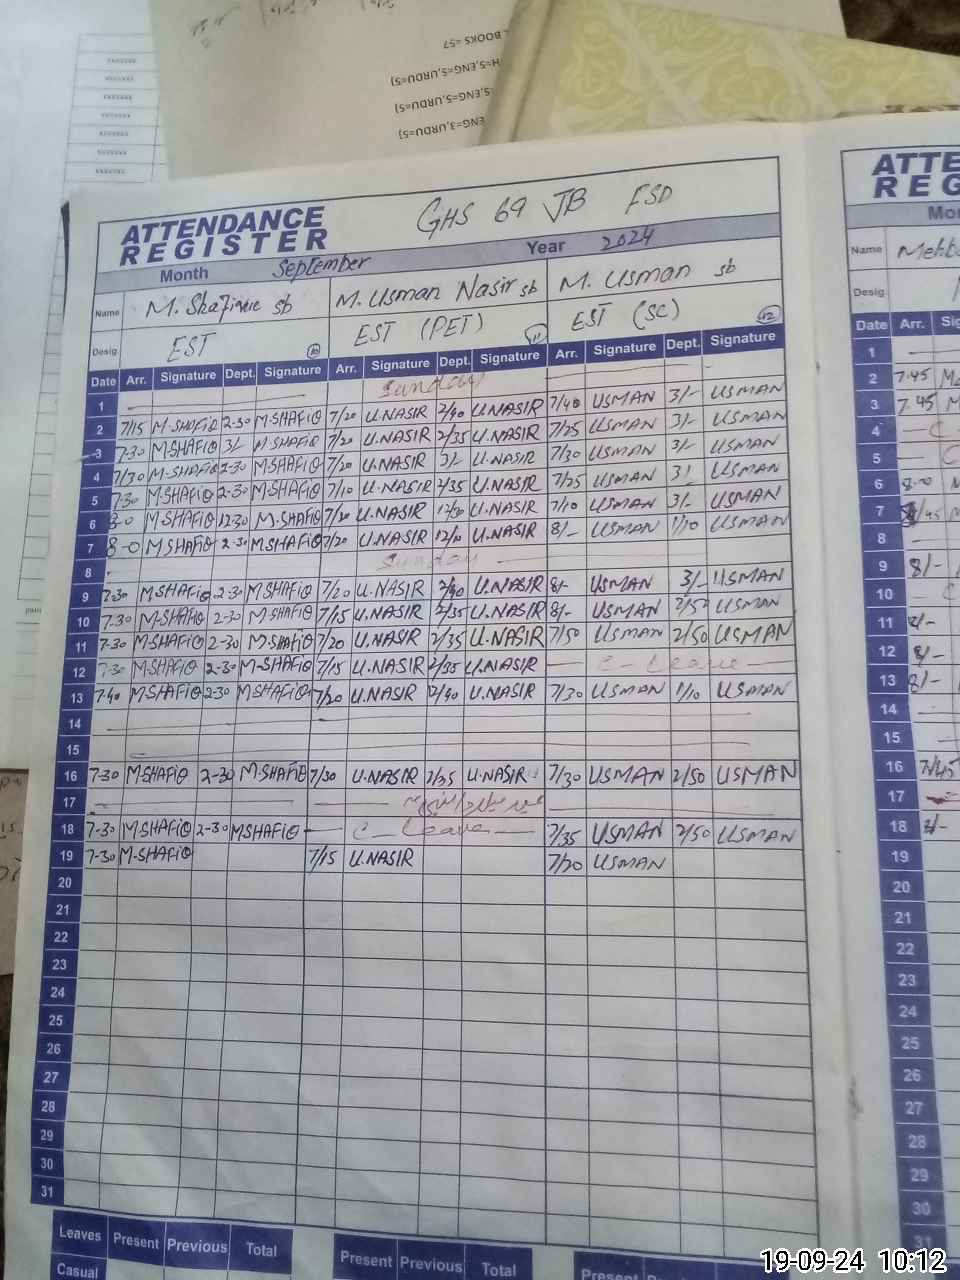 BOOKS =57
H=5,ENG=5,URDU=5)
5,ENG=5,URDU=5)
ENG=3,URDU=5)
ATTENDANCE REGISTER GHS 69 JB FSD
Month September Year 2024
Name M. Shafique sb M. Usman Nasir sb M. Usman sb
Desig. EST 10 EST (PET) 11 EST (SC) 12
Date Arr. Signature Dept. Signature Arr. Signature Dept. Signature Arr. Signature Dept. Signature
1 Sunday
2 7/15 M-SHAFIQ 2-30 M.SHAFIQ 7/20 U.NASIR 2/40 U.NASIR 7/40 USMAN 3/- USMAN
3 7-30 M.SHAFIQ 3/- M.SHAFIQ 7/20 U.NASIR 2/35 U.NASIR 7/25 USMAN 3/- USMAN
4 7/30 M-SHAFIQ 2-30 M.SHAFIQ 7/20 U.NASIR 3/- U.NASIR 7/30 USMAN 3/- USMAN
5 7-30 M.SHAFIQ 2-30 M.SHAFIQ 7/10 U.NASIR 2/35 U.NASIR 7/25 USMAN 3/- USMAN
6 8-0 M.SHAFIQ 12-30 M.SHAFIQ 7/20 U.NASIR U.NASIR 7/10 USMAN 3/- USMAN
7 8-0 M.SHAFIQ 2-30 M.SHAFIQ 7/20 U.NASIR U.NASIR 8/- USMAN 1/10 USMAN
8 Sunday
9 7-30 M.SHAFIQ 2-30 M.SHAFIQ 7/20 U.NASIR 2/40 U.NASIR 8/- USMAN 3/- USMAN
10 7-30 M.SHAFIQ 2-30 M.SHAFIQ 7/15 U.NASIR 2/35 U.NASIR 8/- USMAN 2/50 USMAN
11 7-30 M-SHAFIQ 2-30 M.SHAFIQ 7/20 U.NASIR 2/35 U.NASIR 7/50 USMAN 2/50 USMAN
12 7-30 M-SHAFIQ 2-30 M-SHAFIQ 7/15 U.NASIR 2/35 U.NASIR C-Leave
13 7-40 M-SHAFIQ 2-30 M-SHAFIQ 7/20 U.NASIR 12/40 U.NASIR 7/30 USMAN 1/10 USMAN
14
15
16 7-30 M.SHAFIQ 2-30 M.SHAFIQ 7/30 U.NASIR 2/35 U.NASIR 7/30 USMAN 2/50 USMAN
17 عید میلاد النبی
18 7-30 M.SHAFIQ 2-30 M.SHAFIQ C-Leave 7/35 USMAN 2/50 USMAN
19 7-30 M-SHAFIQ 7/15 U.NASIR 7/20 USMAN
20
21
22
23
24
25
26
27
28
29
30
31
Leaves Present Previous Total Present Previous Total Present
Casual
ATTE
REG
Mo
Name Mehb
Desig.
Date Arr. Sig
1
2 7.45 M
3 7.45 M
4 C
5 C
6 8-00 M
7 /45 M
8
9 8/-
10 C
11 8/-
12 8/-
13 8/-
14
15
16 7/45
17
18 8/-
19
20
21
22
23
24
25
26
27
28
29
30
31
19-09-24 10:12